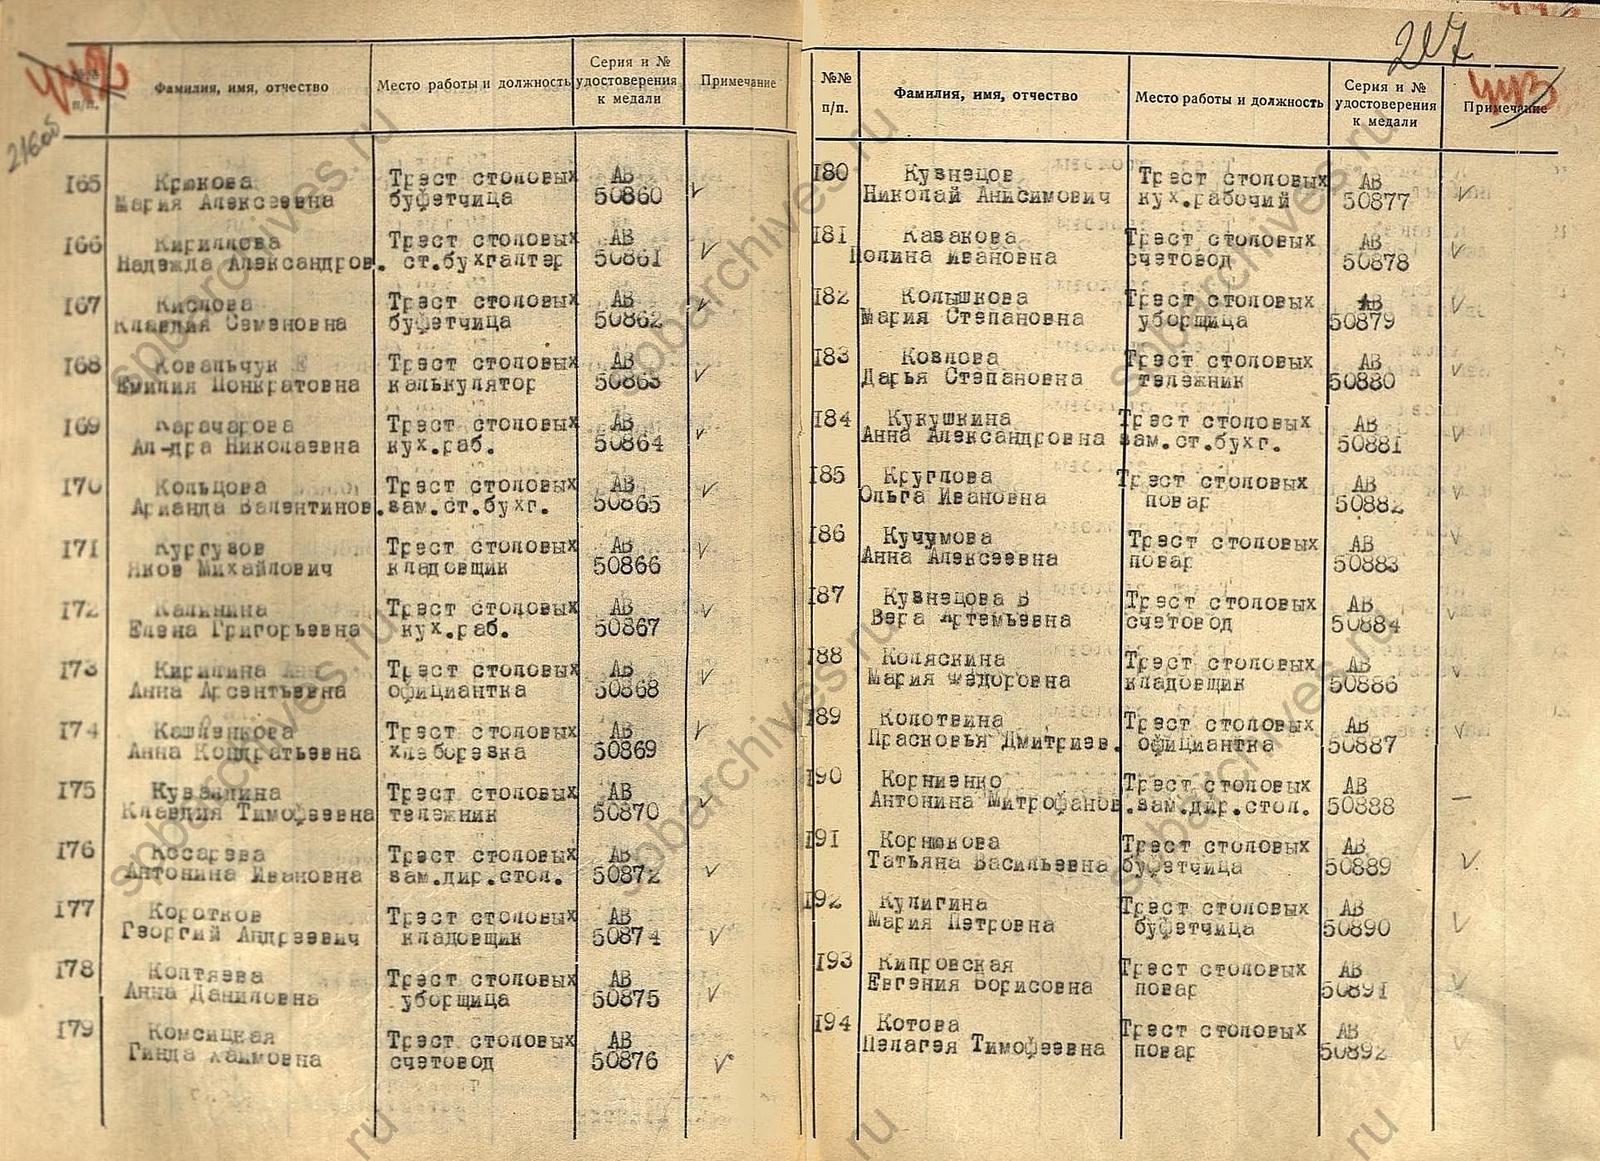 216об
№№ п/п.
Фамилия, имя, отчество
Место работы и должность
Серия и № удостоверения к медали
Примечание
165 Крюкова Трест столовых АВ
Мария Алексеевна буфетчица 50860
166 Кириллова Трест столовых АВ
Надежда Александров. ст.бухгалтер 50861
167 Кислова Трест столовых АВ
Клавдия Семеновна буфетчица 50862
168 Ковальчук Е Трест столовых АВ
Емилия Понкратовна калькулятор 50863
169 Карачарова Трест столовых АВ
Ал-дра Николаевна кух.раб. 50864
170 Кольцова Трест столовых АВ
Арианда Валентинов. зам.ст.бухг. 50865
171 Кургузов Трест столовых АВ
Яков Михайлович кладовщик 50866
172 Калинина Трест столовых АВ
Елена Григорьевна кух.раб. 50867
173 Кирилина Трест столовых АВ
Анна Арсентьевна официантка 50868
174 Трест столовых АВ
Анна Кондратьевна хлеборезка 50869
175 Трест столовых АВ
Клавдия Тимофеевна тележник 50870
176 Косарева Трест столовых АВ
Антонина Ивановна зам.дир.стол. 50872
177 Коротков Трест столовых АВ
Георгий Андреевич кладовщик 50874
178 Коптяева Трест столовых АВ
Анна Даниловна уборщица 50875
179 Комсицкая Трест столовых АВ
Гинда Хаимовна счетовод 50876
217
№№ п/п.
Фамилия, имя, отчество
Место работы и должность
Серия и № удостоверения к медали
Примечание
180 Кузнецов Трест столовых АВ
Николай Анисимович кух.рабочий 50877
181 Казакова Трест столовых АВ
Полина Ивановна счетовод 50878
182 Колышкова Трест столовых АВ
Мария Степановна уборщица 50879
183 Козлова Трест столовых АВ
Дарья Степановна тележник 50880
184 Кукушкина Трест столовых АВ
Анна Александровна зам.ст.бухг. 50881
185 Круглова Трест столовых АВ
Ольга Ивановна повар 50882
186 Кучумова Трест столовых АВ
Анна Алексеевна повар 50883
187 Кузнецова В Трест столовых АВ
Вера Артемьевна счетовод 50884
188 Коляскина Трест столовых АВ
Мария Федоровна кладовщик 50886
189 Колотвина Трест столовых АВ
Прасковья Дмитриев. официантка 50887
190 Корниенко Трест столовых АВ
Антонина Митрофанов. зам.дир.стол. 50888 —
191 Корнюкова Трест столовых АВ
Татьяна Васильевна буфетчица 50889
192 Кулигина Трест столовых АВ
Мария Петровна буфетчица 50890
193 Кипровская Трест столовых АВ
Евгения Борисовна повар 50891
194 Котова Трест столовых АВ
Пелагея Тимофеевна повар 50892
spbarchives.ru